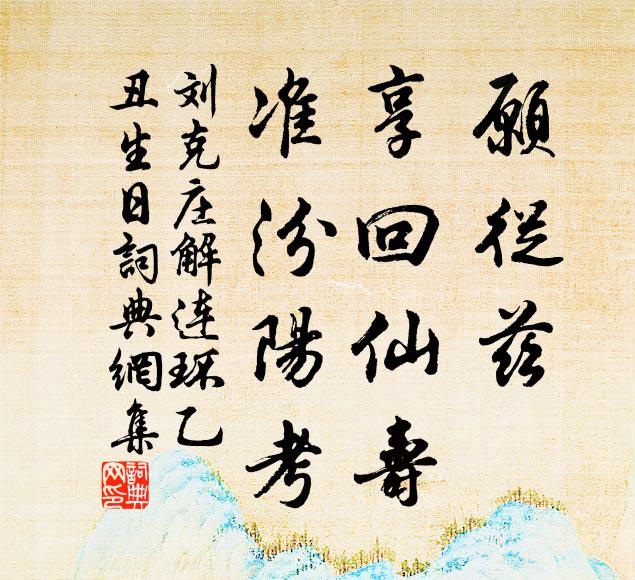 願從茲
享回仙壽
准汾陽考
刘克庄解連环乙
丑生日詞典網集
詞典
网印